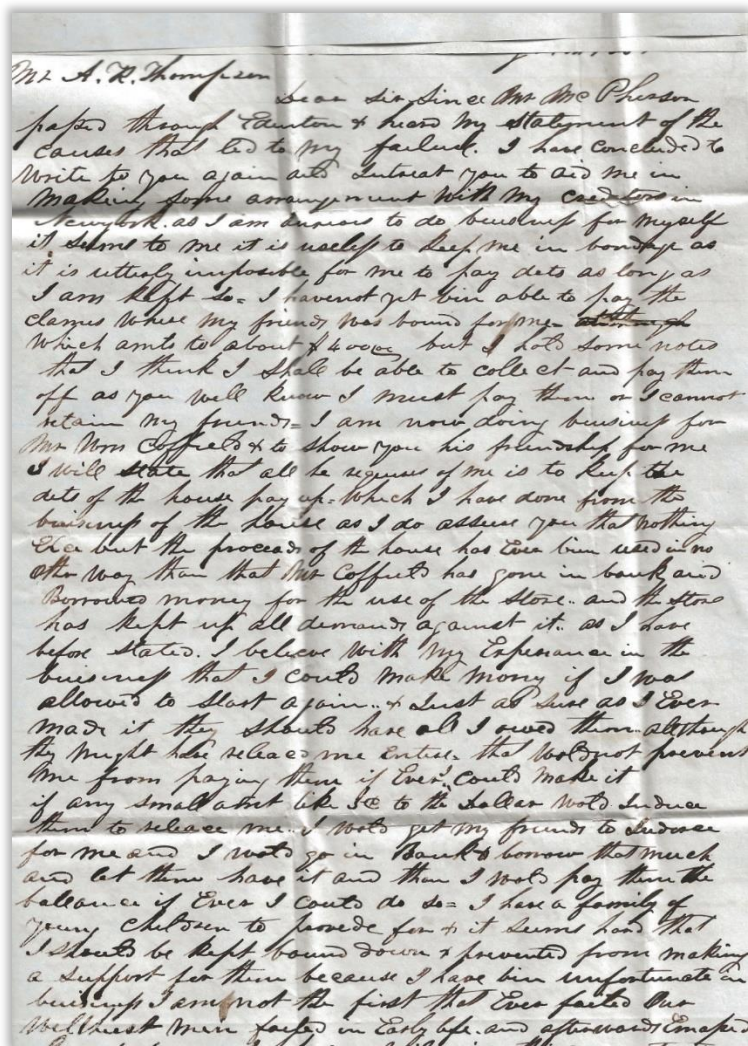 Mr A. R. Thompson
Dear Sir Since Mr Mc Pherson
passed through Edenton & heard my statement of the
causes that led to my failure. I have concluded to
write to you again and intreat you to aid me in
making some arrangement with my creditors in
Newyork. as I am anxious to do buisness for myself
it seems to me it is useless to keep me in bondage as
it is utterly imposible for me to pay dets as long as
I am kept so= I have not yet bin able to pay the
clames where my friends was bound for me= although
which amts to about $4000 but I hold some notes
that I think I shall be able to collect and pay them
off as you well know I must pay them or I cannot
retain my friends= I am now doing buisness for
Mr Wm Coffield & to show you his friendship for me
I will state that all he requires of me is to keep the
dets of the house pay up= which I have done from the
buisness of the house as I do assure you that nothing
Elce but the proceads of th house has Ever bin used in no
other way than that Mr Coffield has gone in bank and
Borrowed money for the use of the store.. and the store
has kept up all demands against it.. as I have
before stated. I beleeve with my Experiance in the
buisness that I could make money if I was
allowed to start again.. & Just as sure as I Ever
made it they should have all I owed them. although
they might have released me Entire= that wold not prevent
me from paying them if Ever I could make it
if any small amt like to the Dollar wold Induce
them to release me.. I wold get my friends to Indorce
for me and I wold go in Bank & borrow that much
and let them have it and than I wold pay them the
ballance if Ever I could do so= I have a family of
young children to provede for & it seems hard that
I should be kept bound down & prevented from making
a support for them because I have bin unfortunate in
buisness I am not the first that Ever failed Our
men failed in Early life. and afterwards